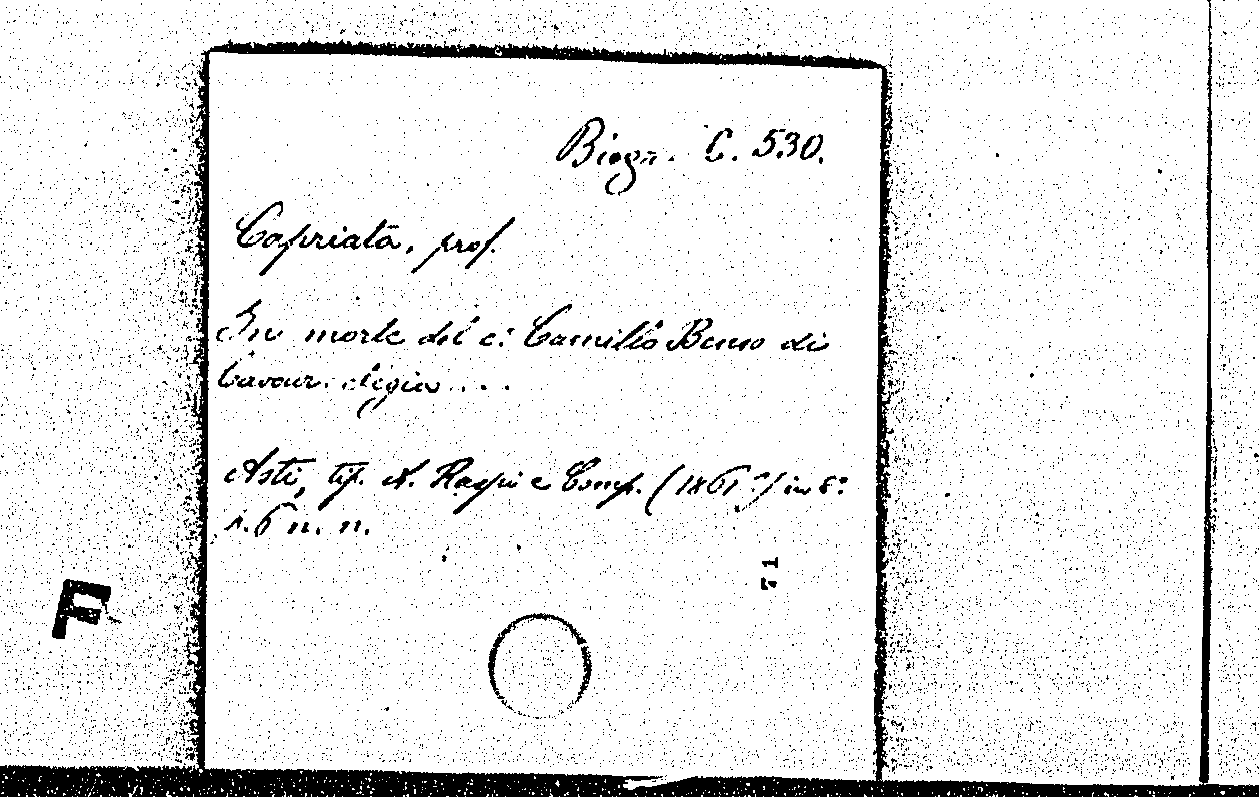 Biogr. C. 530.
Capriata, prof.
In morte del c: Camillo Benso di
Cavour. elegia . . .
Asti, tip. A. Raspi e Comp. (1861?) in 8:
p. 6 n. n.
71
F